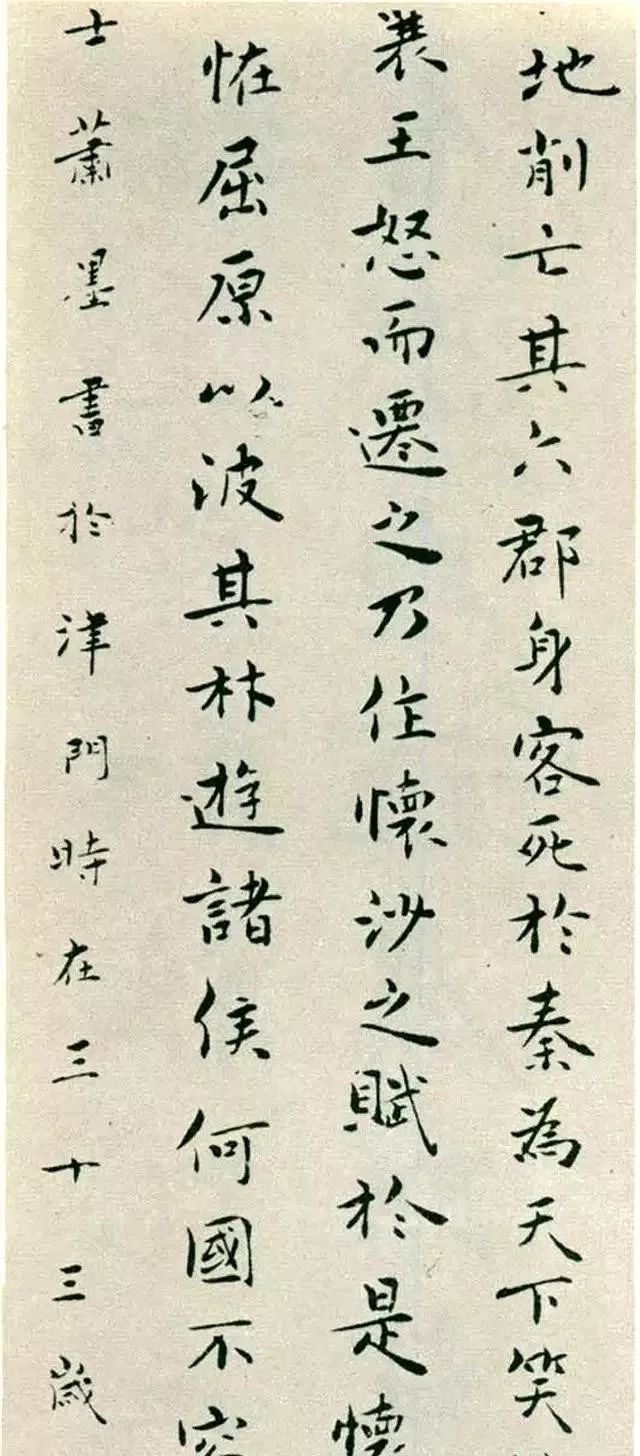 地削亡其六郡身客死於秦為天下笑
襄王怒而遷之乃作懷沙之賦於是懷
恠屈原以彼其材遊諸侯何國不容
士蕭墨書於津門時在三十三歲